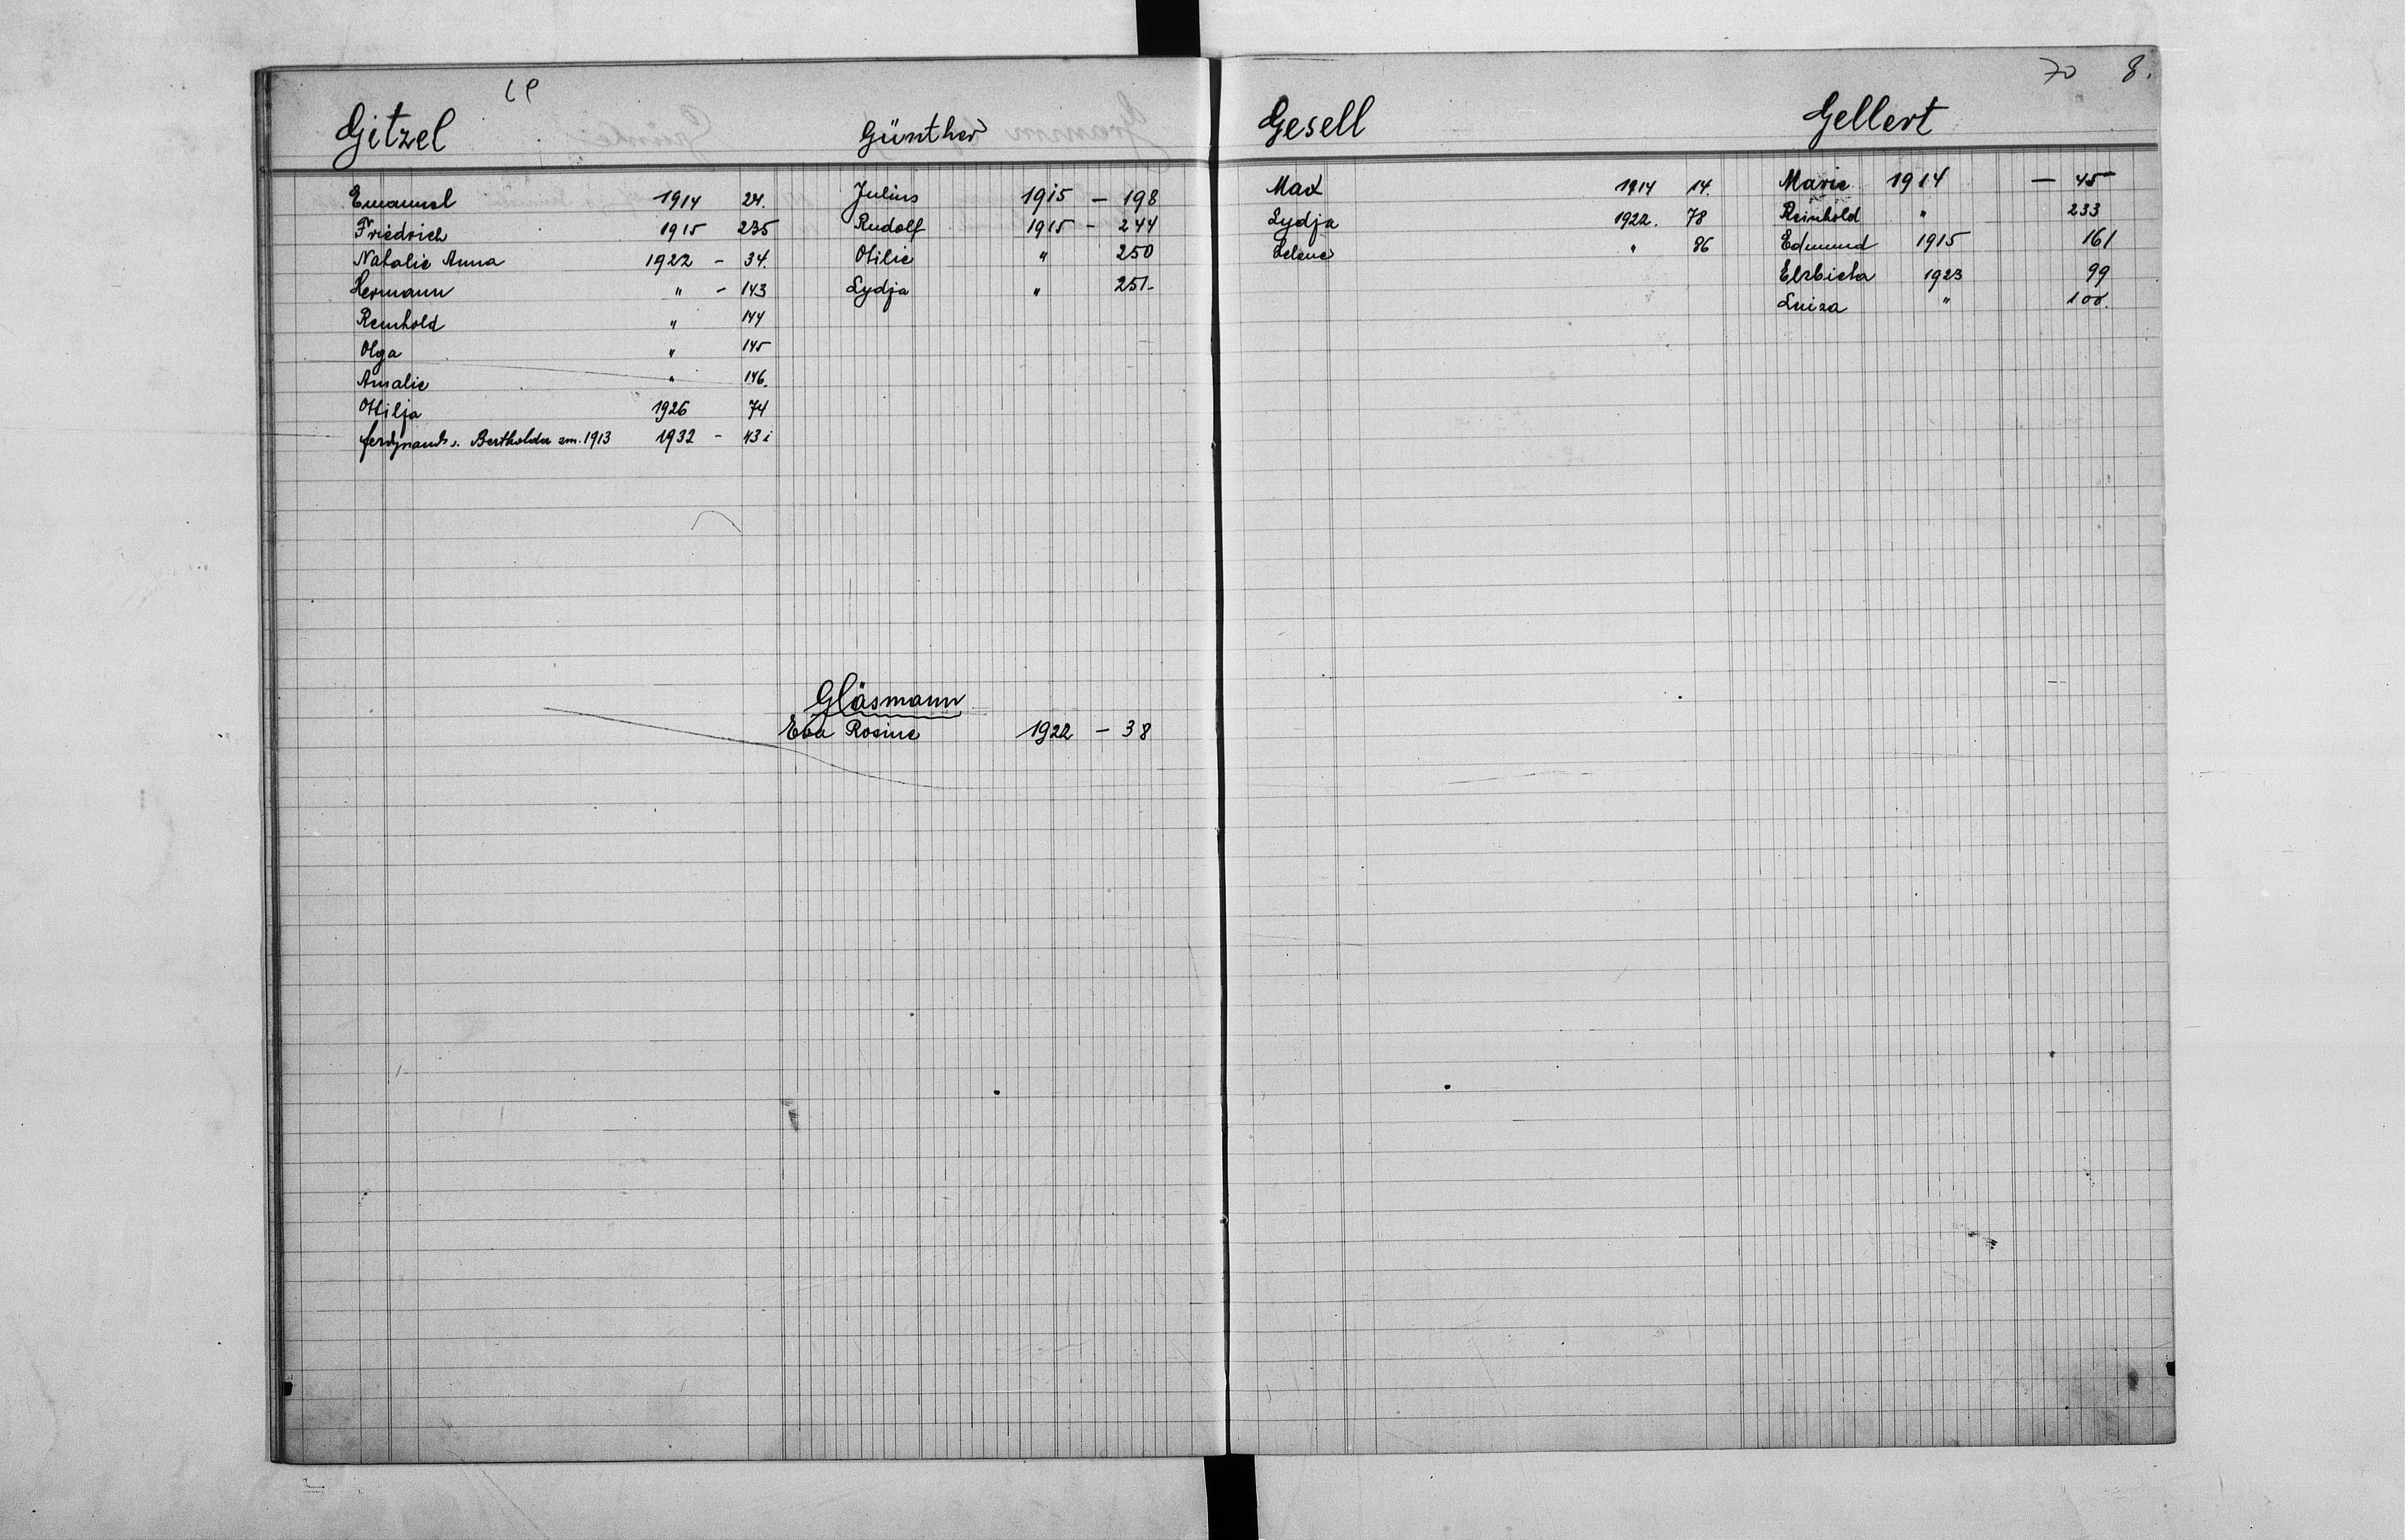 Gitzel
Emanuel 1914 24.
Friedrich 1915 235
Natalie Anna 1922 - 34.
Hermann " - 143
Reinhold " 144
Olga " 145
Amalie " 146.
Ottilja 1926 74
Bertholda zm. 1913 1932 - 43
Günther
Julius 1915 - 198
Rudolf 1915 - 244
Otilie " 250
Lydja " 251-
Gläsmann
Eva Rosine 1922 - 38
70 8.
Gesell
Max 1914 14.
Lydja 1922. 78
Helene " 86
Gellert
Marie 1914 - 45
Reinhold " 233
Edmund 1915 161
Elzbieta 1923 99
Luiza " 100.